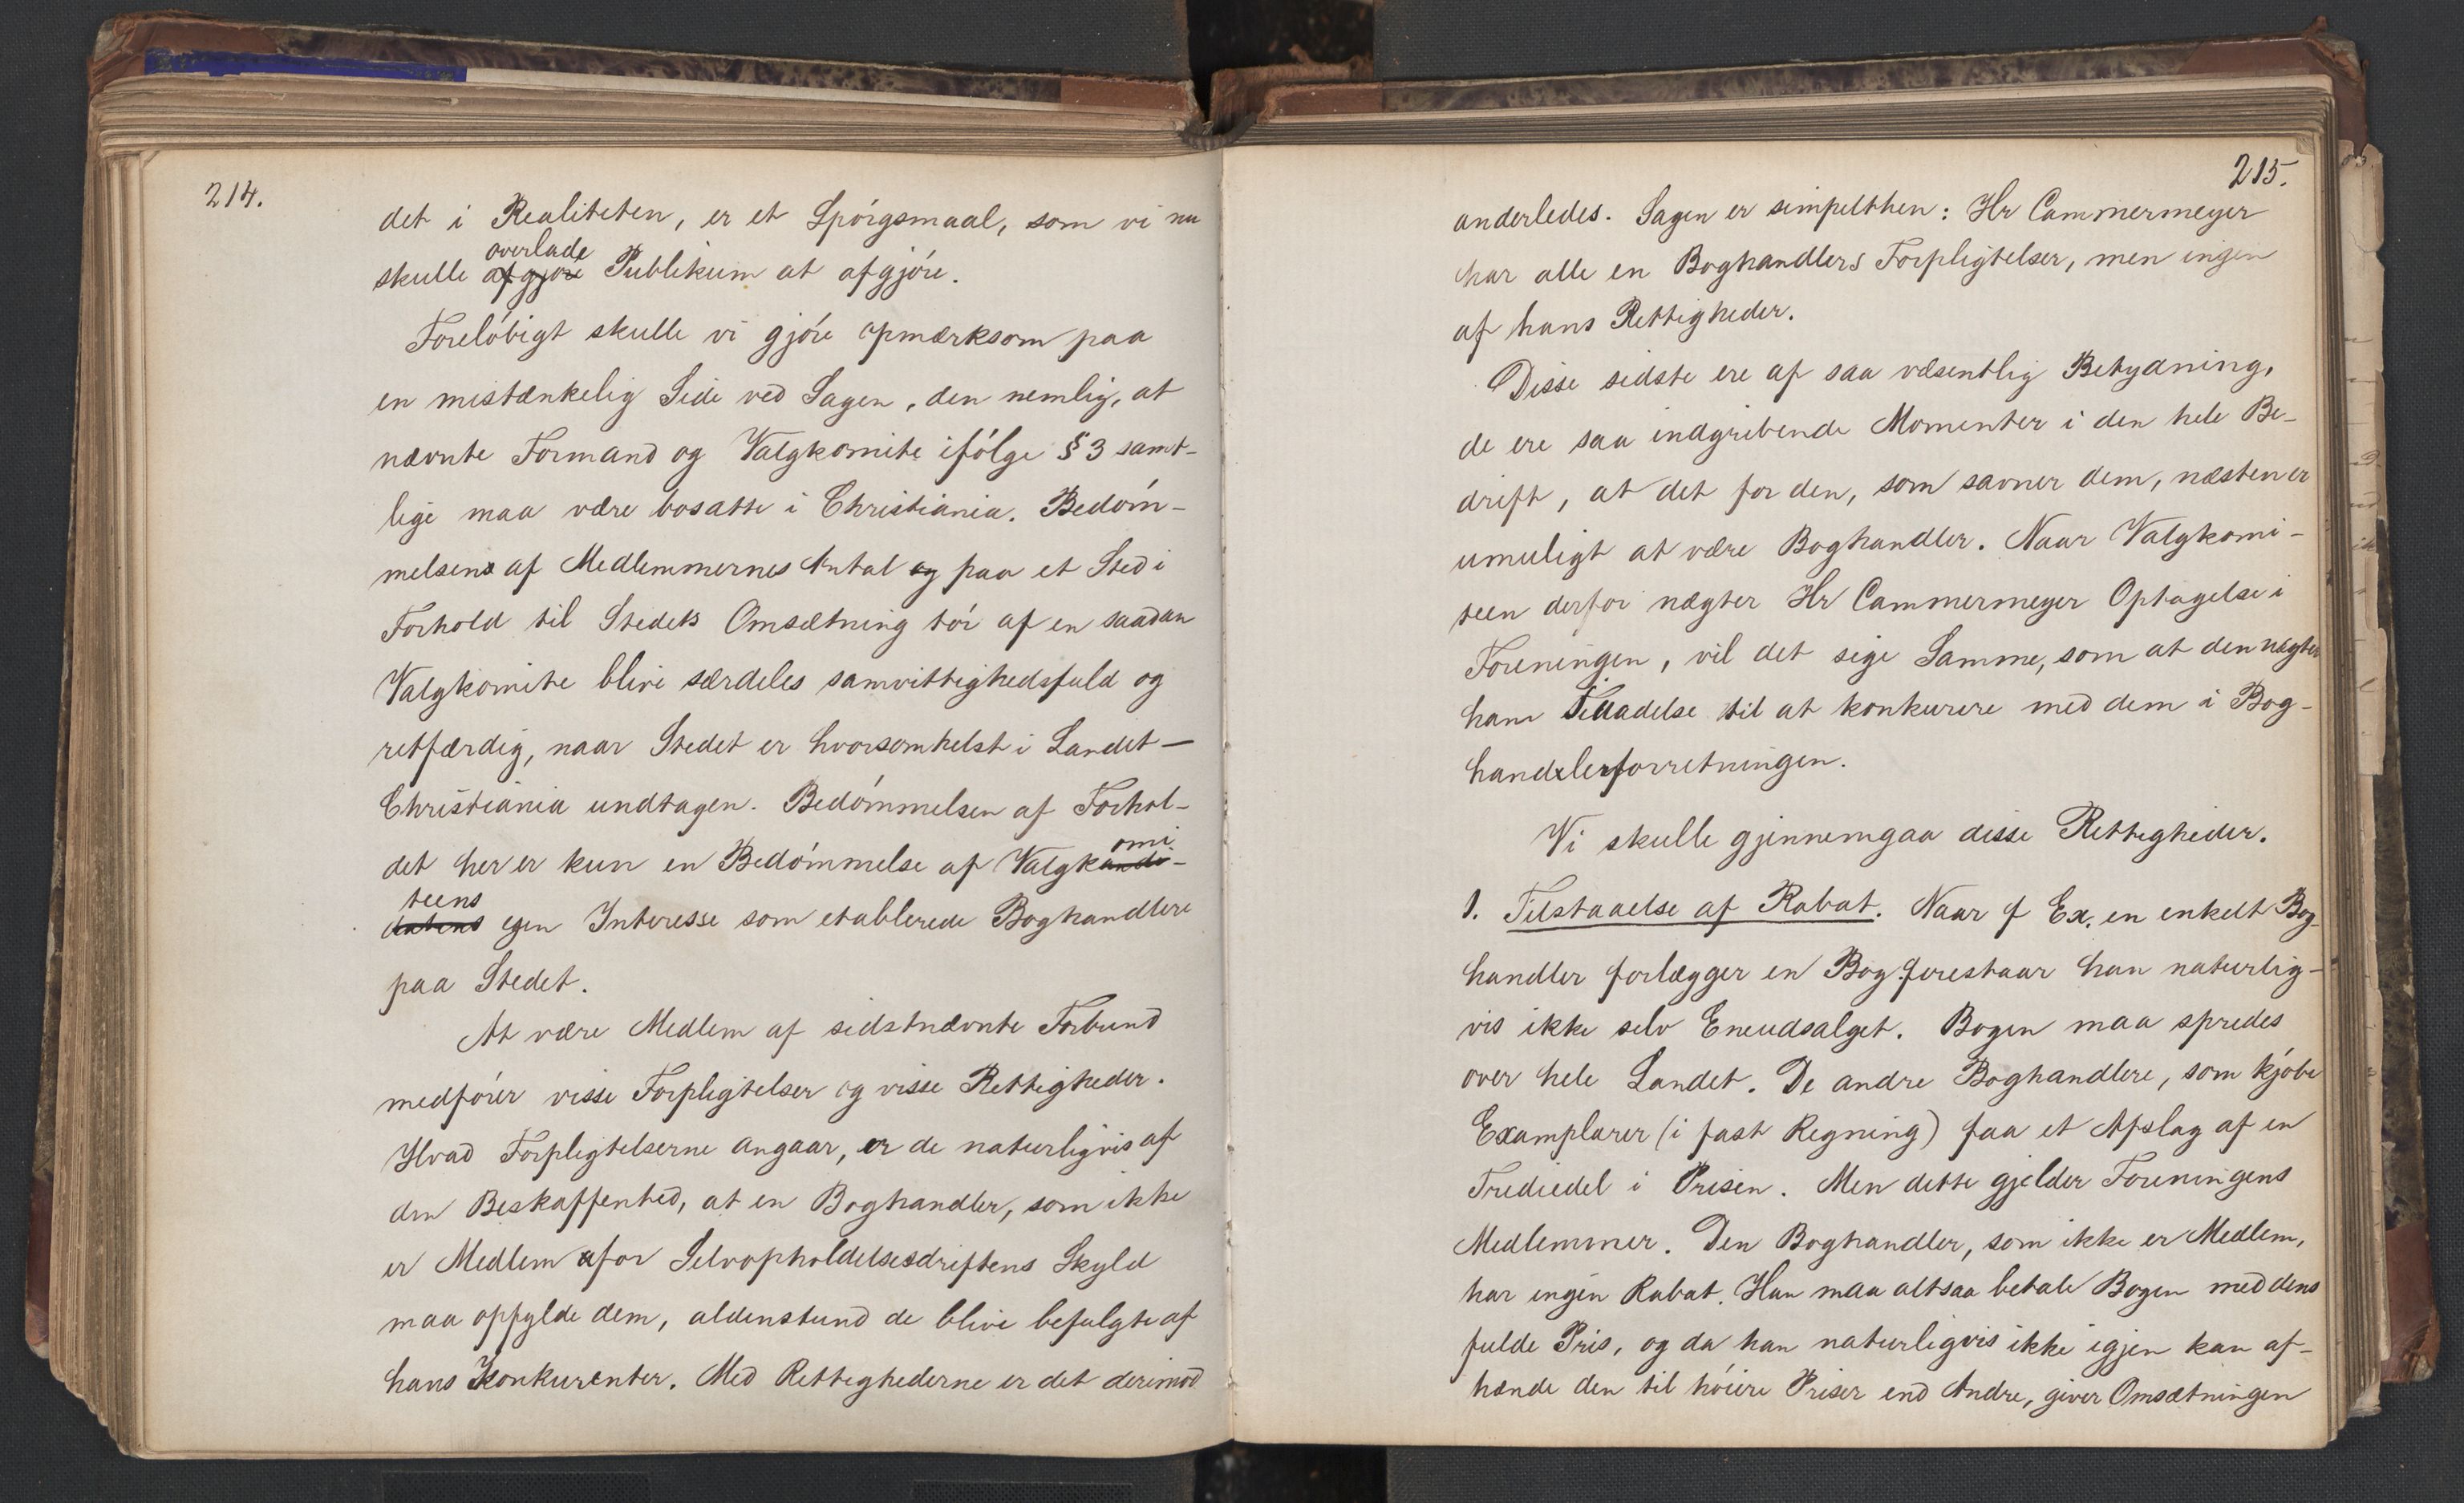 214.
det i Realiteten, er et Spórgsmaal, som vi nu
overlade
skulle afgjóre Publikum at afgjóre.
Forelóbigt skulle vi gjóre opmærksom paa
en mistænkelig Side ved Sagen, den nemlig, at
nævnte Formand og Valgkomite ifólge § 3 samt-
lige maa være bosatte i Christiania. Bedóm-
melsens af Medlemmernes Antal og paa et Sted i
Forhold til Stedets Omsætning tór af en saadan
Valgkomite blive særdeles samvittighedsfuld og
retfærdig, naar Stedet er hvorsomhelst i Landet —
Christiania undtagen. Bedómmelsen af Forhol-
omi
det her er kun en Bedómmelse af Valgkandi-
teens
datens egen Interesse som etablerede Boghandlere
paa Stedet.
At være Medlem af sidstnævnte Forbund
medfórer visse Forpligtelser og visse Rettigheder.
Hvad Forpligtelserne angaar, er de naturligvis af
den Beskaffenhed, at en Boghandler, som ikke
er Medlem afor Selvopholdelsesdriftens Skyld
maa opfylde dem, aldenstund de blive befulgte af
hans Konkurenter. Med Rettighederne er det derimod
215.
anderledes. Sagen er simpelthen: Hr Cammermeyer
har alle en Boghandlers Forpligtelser, men ingen
af hans Rettigheder.
Disse sidste ere af saa væsentlig Betydning,
de ere saa indgribende Momenter i den hele Be-
drift, at det for den, som savner dem, næsten er
umuligt at være Boghandler. Naar Valgkomi-
teen derfor nægter Hr Cammermeyer Optagelse i
Foreningen, vil det sige Samme, som at den nægter
ham Tilladelse til at konkurere med dem i Bog-
handlerforretningen.
Vi skulle gjennemgaa disse Rettigheder.
1. Tilstaaelse af Rabat. Naar f Ex. en enkelt Bog-
handler forlægger en Bog forestaar han naturlig-
vis ikke selv Eneudsalget. Bogen maa spredes
over hele Landet. De andre Boghandlere, som kjóbe
Examplarer (i fast Regning) faa et Afslag af en
Trediedel i Prisen. Men dette gjelder Foreningens
Medlemmer. Den Boghandler, som ikke er Medlem,
har ingen Rabat. Han maa altsaa betale Bogen med dens
fulde Pris, og da han naturligvis ikke igjen kan af-
hænde den til hóiere Priser end Andre, giver Omsætningen